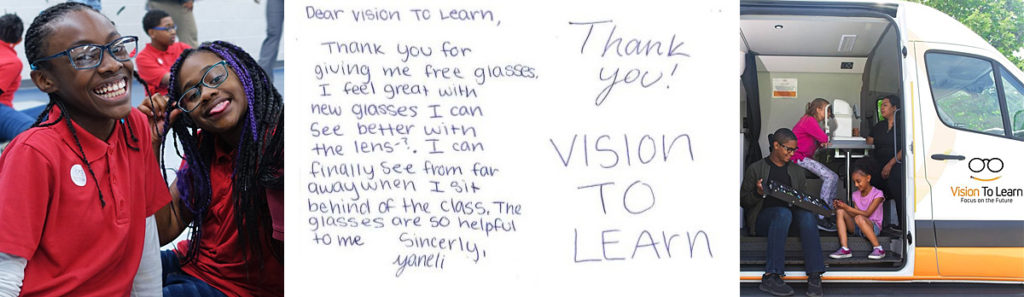 Dear Vision To Learn,
Thank you for
giving me free glasses.
I feel great with
new glasses I can
see better with
the lens-?. I can
finally see from far
away when I sit
behind of the class. The
glasses are so helpful
to me
Sincerly,
yaneli
Thank
you!
VISION
TO
LEArn
Vision To Learn
Focus on the Future